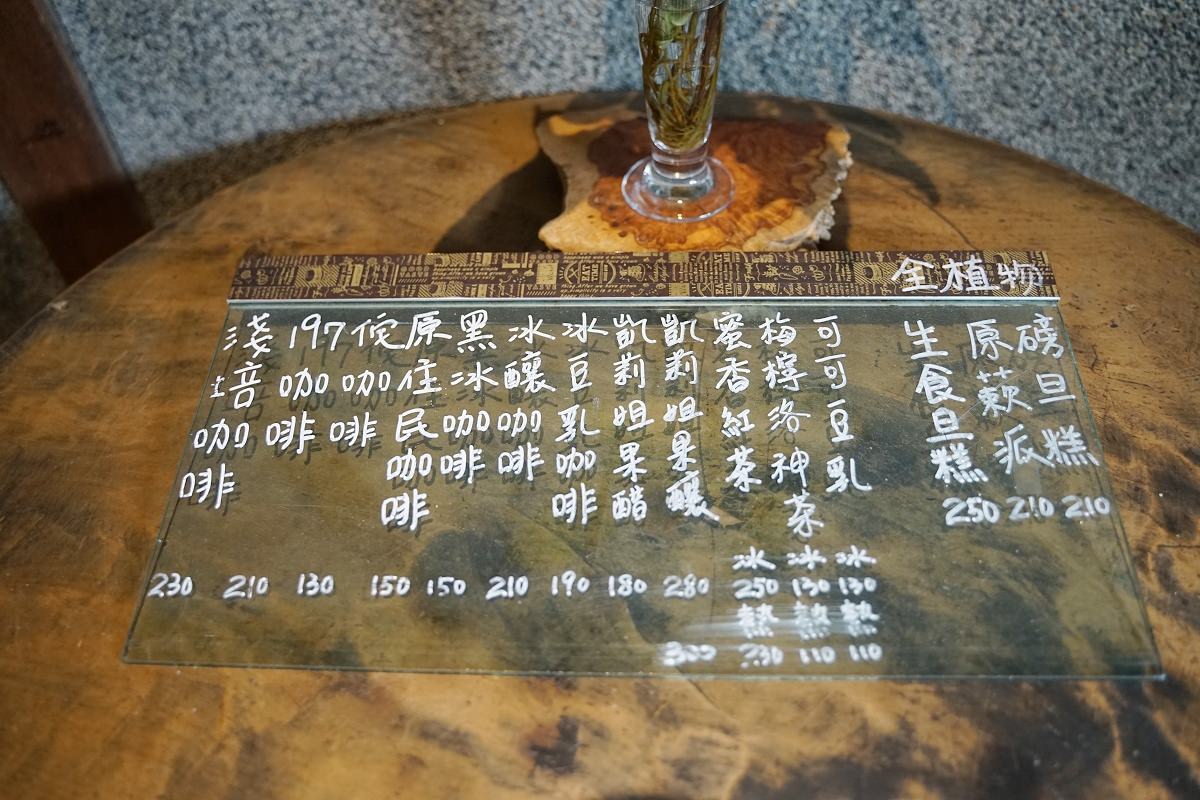 全植物
磅旦糕 210
原蔌派 210
生食旦糕 250
可可豆乳 冰 130 熱 110
梅檸洛神茶 冰 130 熱 110
蜜香紅茶 冰 250 熱 230
凱莉姐果釀 280 300
凱莉姐果醋 180
冰豆乳咖啡 190
冰釀咖啡 210
黑冰咖啡 150
原住民咖啡 150
侘咖啡 130
197咖啡 210
淺焙咖啡 230